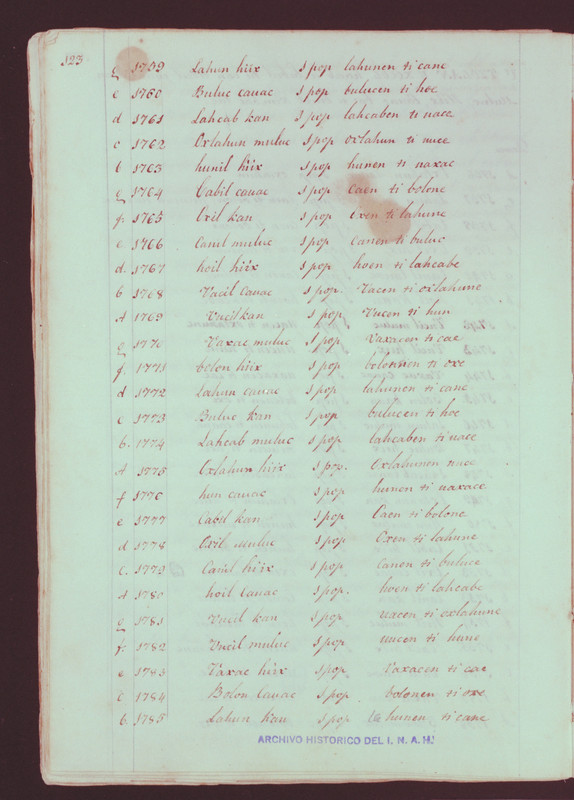 123
g 1759 Lahun hiix 1 pop lahunen ti cane
e 1760 Buluc cauac 1 pop bulucen ti hoe
d 1761 Laheab kan 1 pop laheaben ti uace
c 1762 Oxlahun muluc 1 pop oxlahun ti uuce
b 1763 hunil hiix 1 pop hunen ti uaxac
g 1764 Cabil cauac 1 pop Caen ti bolone
f 1765 Oxil kan 1 pop oxen ti lahune
e 1766 Canil muluc 1 pop Canen ti buluc
d 1767 hoil hiix 1 pop hoen ti laheabe
b 1768 Vacil Cauac 1 pop Vacen ti oxlahune
A 1769 Vucil kan 1 pop Vucen ti hun
g 1770 Vaxac muluc 1 pop Vaxacen ti cae
f 1771 bolon hiix 1 pop bolonnen ti oxe
d 1772 Lahun cauac 1 pop lahunen ti cane
c 1773 Buluc kan 1 pop bulucen ti hoe
b. 1774 Laheab muluc 1 pop laheaben ti uace
A 1775 Oxlahun hiix 1 pop. Oxlahunen uace
f 1776 hun cauac 1 pop hunen ti uaxace
e 1777 Cabil kan 1 pop Caen ti bolone
d 1778 Oxil muluc 1 pop Oxen ti lahune
c. 1779 Canil hiix 1 pop Canen ti buluce
A 1780 hoil Cauac 1 pop. hoen ti laheabe
g 1781 Vucil kan 1 pop uacen ti oxlahune
f. 1782 Vucil muluc 1 pop uucen ti hune
e 1783 Vaxac hiix 1 pop Vaxacen ti cae
c 1784 Bolon Cauac 1 pop bolonen ti oxe
b. 1785 Lahun kan 1 pop hunen ti cane
ARCHIVO HISTORICO DEL I. N. A. H.